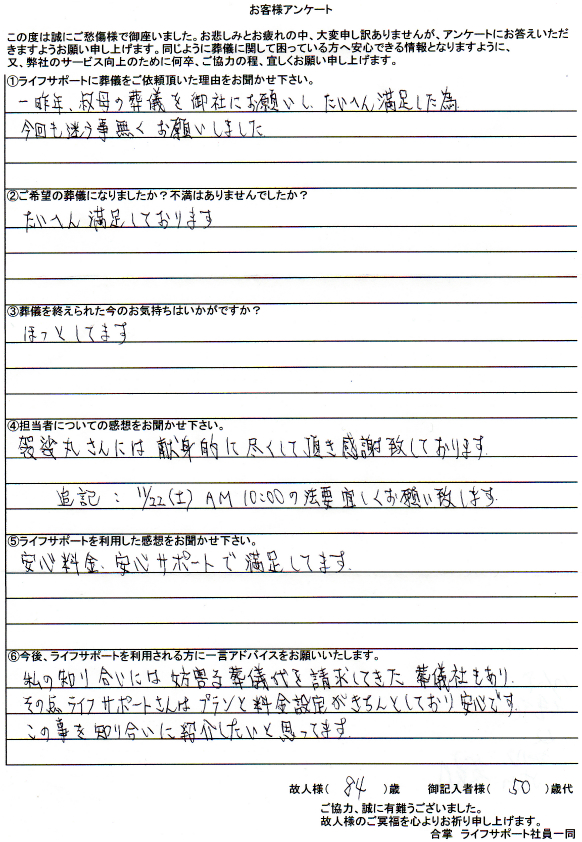 お客様アンケート
この度は誠にご愁傷様で御座いました。お悲しみとお疲れの中、大変申し訳ありませんが、アンケートにお答えいただ
きますようお願い申し上げます。同じように葬儀に関して困っている方へ安心できる情報となりますように、
又、弊社のサービス向上のために何卒、ご協力の程、宜しくお願い申し上げます。
①ライフサポートに葬儀をご依頼頂いた理由をお聞かせ下さい。
一昨年、叔母の葬儀を御社にお願いし、たいへん満足した為
今回も迷う事無く お願いしました
②ご希望の葬儀になりましたか？不満はありませんでしたか？
たいへん満足しております
③葬儀を終えられた今のお気持ちはいかがですか？
ほっとしてます
④担当者についての感想をお聞かせ下さい。
袈裟丸さんには献身的に尽くして頂き感謝致しております.
追記: 11/22(土) AM 10:00の法要宜しくお願い致します.
⑤ライフサポートを利用した感想をお聞かせ下さい。
安心料金、安心サポートで満足してます.
⑥今後、ライフサポートを利用される方に一言アドバイスをお願いいたします。
私の知り合いには 葬儀代を請求してきた 葬儀社もあり.
その点ライフサポートさんはプランと料金設定がきちんとしており安心です.
この事を知り合いに紹介したいと思ってます.
故人様( 84 )歳 御記入者様( 50 )歳代
ご協力、誠に有難うございました。
故人様のご冥福を心よりお祈り申し上げます。
合掌 ライフサポート社員一同